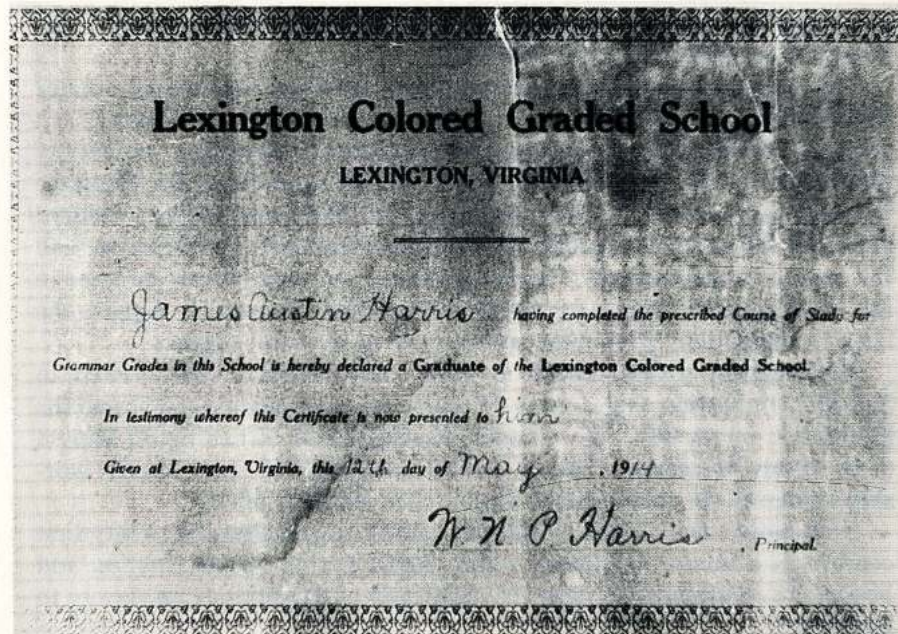 Lexington Colored Graded School
LEXINGTON, VIRGINIA
James Austin Harris having completed the prescribed Course of Study for
Grammar Grades in this School is hereby declared a Graduate of the Lexington Colored Graded School.
In testimony whereof this Certificate is now presented to him
Given at Lexington, Virginia, this 12th day of May, 1914
W. N. P. Harris, Principal.